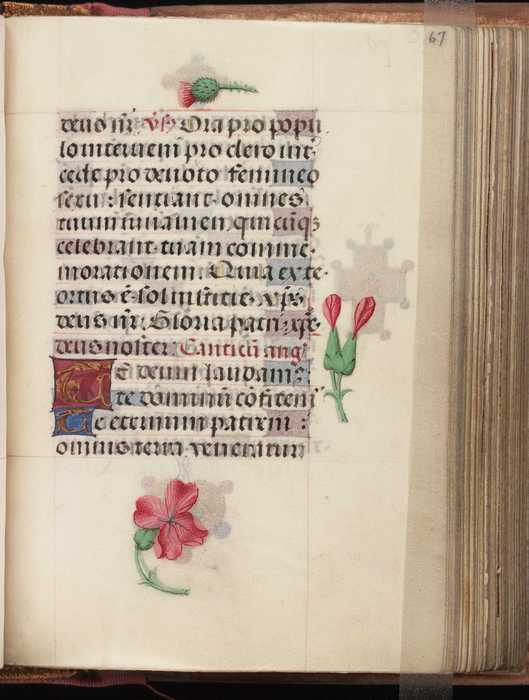 67
deus nr̄. v̄s Ora pro popu
lo interueni pro clero int̄
cede pro deuoto femineo
sexu: sentiant omnes
tuum iuuamen, quicūqs
celebrant tuam comme-
morationem. Quia ex te.
ortus ē sol iusticie. xp̄s
deus nr̄. Gloria patri. xp̄e.
deus noster. Canticū ang
Te deum laudamꝰ:
te dominū cōfitem̄
Te eternum patrem:
omnis terra ueneratur